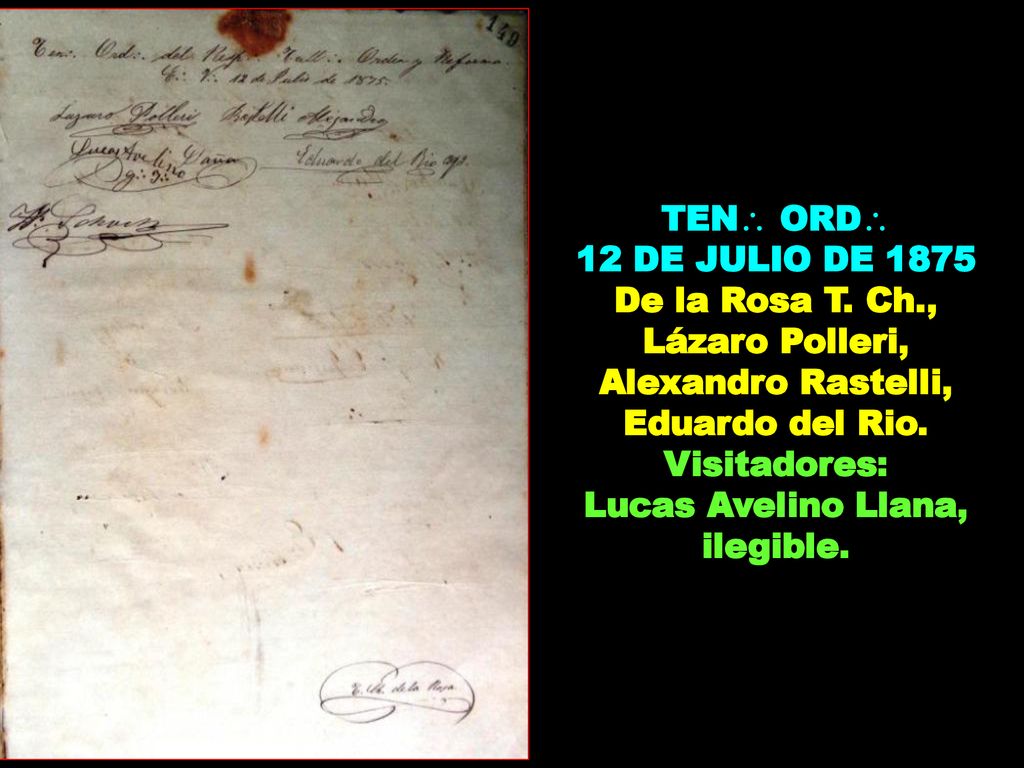 140
Ten∴ Ord∴ del Resp∴ Tall∴ Orden y Reforma.
E∴ V∴ 12 de Julio de 1875.
Lazaro Polleri Rastelli Alejandro
Lucas Avelino
Eduardo del Rio
T. Ch. de la Rosa
TEN∴ ORD∴
12 DE JULIO DE 1875
De la Rosa T. Ch.,
Lázaro Polleri,
Alexandro Rastelli,
Eduardo del Rio.
Visitadores:
Lucas Avelino Llana,
ilegible.